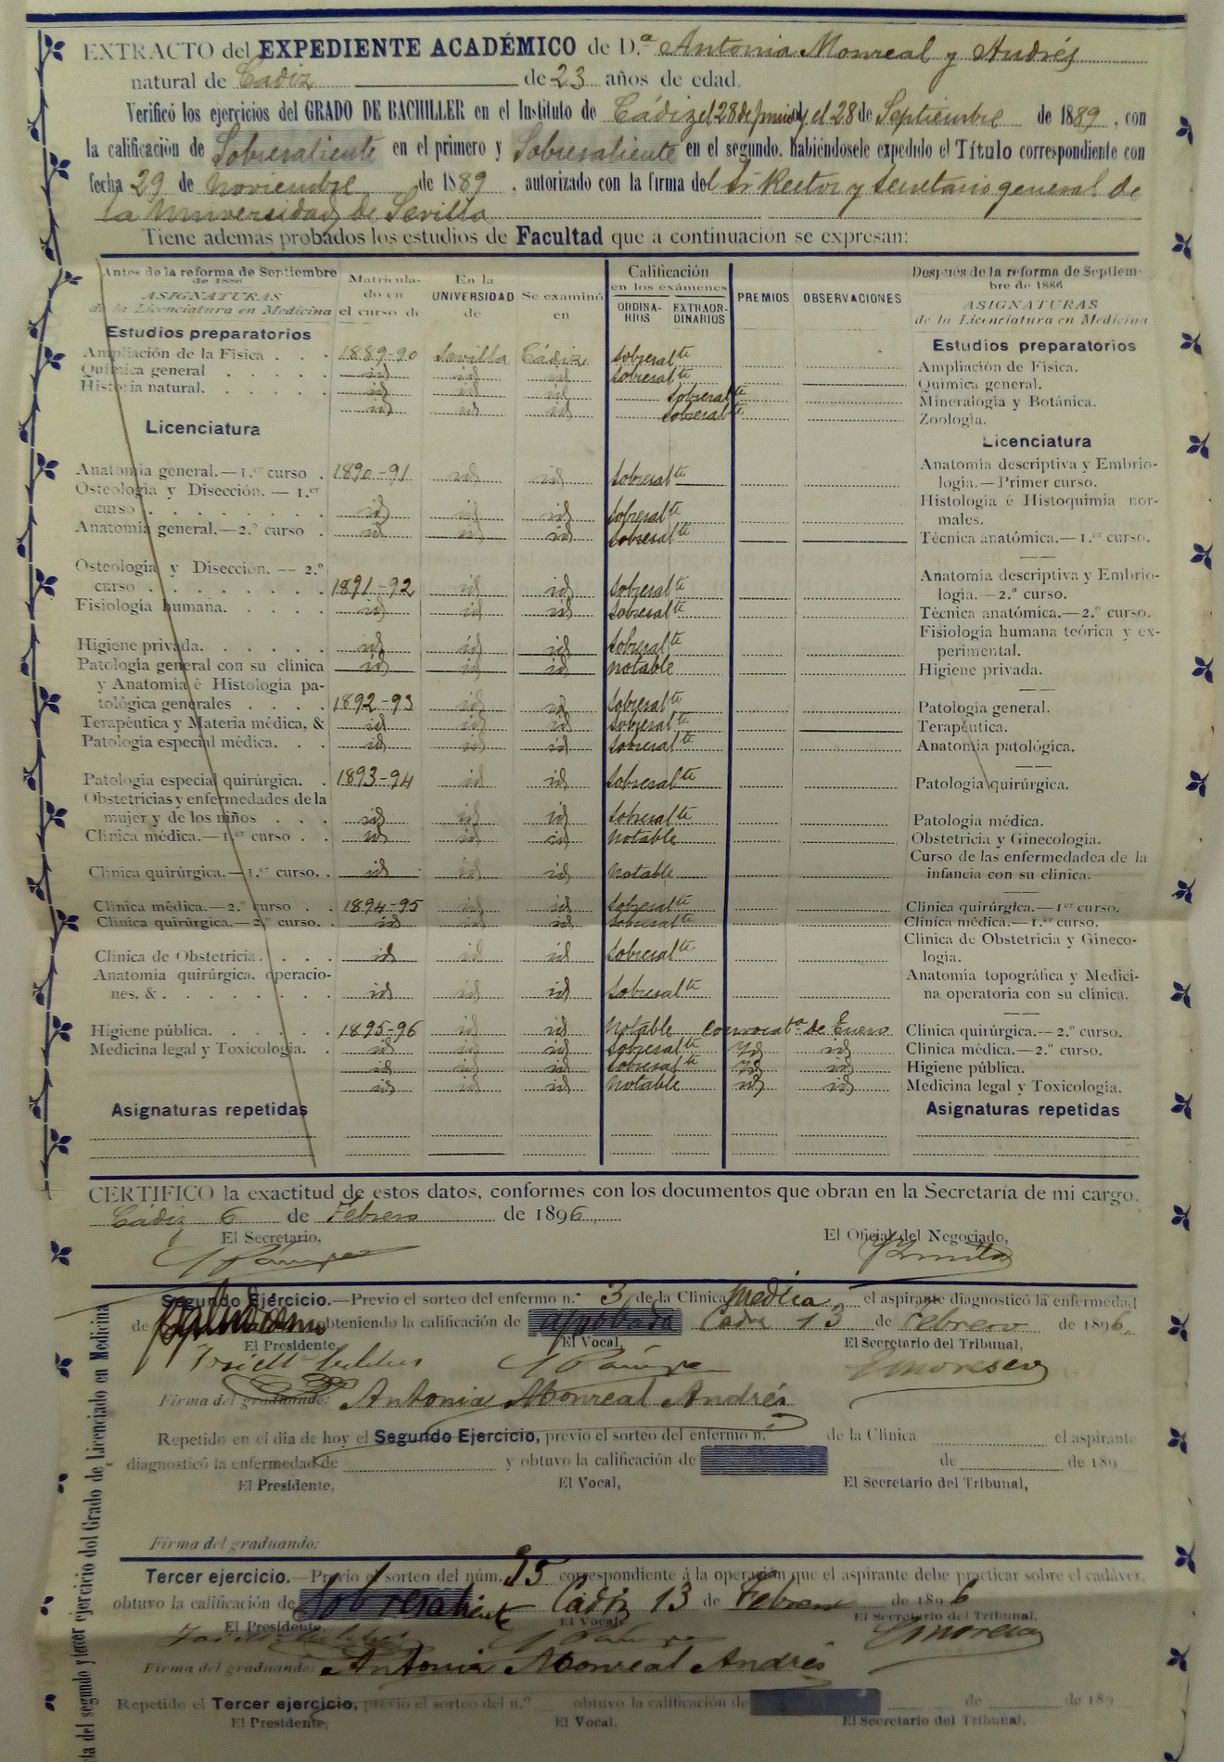 EXTRACTO del EXPEDIENTE ACADÉMICO de D.ª Antonia Monreal y Andrés
natural de Cadiz de 23 años de edad.
Verificó los ejercicios del GRADO DE BACHILLER en el Instituto de Cádiz el 28 de Junio y el 28 de Septiembre de 1889, con
la calificación de Sobresaliente en el primero y Sobresaliente en el segundo. Habiéndosele expedido el Título correspondiente con
fecha 29 de Noviembre de 1889, autorizado con la firma del Sr Rector y Secretario general de
la Universidad de Sevilla
Tiene además probados los estudios de Facultad que á continuación se expresan:
Antes de la reforma de Septiembre de 1886
ASIGNATURAS
de la Licenciatura en Medicina
Matriculado en el curso de
En la UNIVERSIDAD de
Se examinó en
Calificación en los exámenes
ORDINARIOS
EXTRAORDINARIOS
PREMIOS
OBSERVACIONES
Después de la reforma de Septiembre de 1886
ASIGNATURAS
de la Licenciatura en Medicina
Estudios preparatorios Estudios preparatorios
Ampliación de la Física 1889-90 Sevilla Cádiz Sobresalte Ampliación de Física.
Química general id id id Sobresalte Química general.
Historia natural. id id id Sobresalte Mineralogía y Botánica.
id id id Sobresalte Zoología.
Licenciatura Licenciatura
Anatomía general.—1.er curso 1890-91 id id Sobresalte Anatomía descriptiva y Embriología.—Primer curso.
Osteología y Disección.—1.er curso id id id Sobresalte Histología é Histoquimia normales.
Anatomía general.—2.º curso id id id Sobresalte Técnica anatómica.—1.er curso.
Osteología y Disección.—2.º curso 1891-92 id id Sobresalte Anatomía descriptiva y Embriología.—2.º curso.
Fisiología humana. id id id Sobresalte Técnica anatómica.—2.º curso.
Fisiología humana teórica y experimental.
Higiene privada. id id id Sobresalte
Patología general con su clínica id id id Notable Higiene privada.
y Anatomía é Histología patológica generales 1892-93 id id Sobresalte Patología general.
Terapéutica y Materia médica, & id id id Sobresalte Terapéutica.
Patología especial médica. id id id Sobresalte Anatomía patológica.
Patología especial quirúrgica. 1893-94 id id Sobresalte Patología quirúrgica.
Obstetricias y enfermedades de la
mujer y de los niños id id id Sobresalte Patología médica.
Clínica médica.—1.er curso id id id Notable Obstetricia y Ginecología.
Clínica quirúrgica.—1.er curso. id id id Notable Curso de las enfermedadea de la infancia con su clínica.
Clínica médica.—2.º curso 1894-95 id id Sobresalte Clínica quirúrgica.—1er curso.
Clínica quirúrgica.—2.º curso. id id id Sobresalte Clínica médica.—1.er curso.
Clínica de Obstetricia. id id id Sobresalte Clínica de Obstetricia y Ginecología.
Anatomía quirúrgica, operaciones, & id id id Sobresalte Anatomía topográfica y Medicina operatoria con su clínica.
Higiene pública. 1895-96 id id Notable Convocata de Enero Clínica quirúrgica.—2.º curso.
Medicina legal y Toxicología. id id id Sobresalte id id Clínica médica.—2.º curso.
id id id Sobresalte id id Higiene pública.
id id id Notable id id Medicina legal y Toxicología.
Asignaturas repetidas Asignaturas repetidas
CERTIFICO la exactitud de estos datos, conformes con los documentos que obran en la Secretaría de mi cargo.
Cádiz 6 de Febrero de 1896.
El Secretario, El Oficial del Negociado,
Segundo Ejercicio.—Previo el sorteo del enfermo n.º 3 de la Clínica Medica el aspirante diagnosticó la enfermedad
de obteniendo la calificación de aprobada Cadiz 13 de Febrero de 1896.
El Presidente, El Vocal, El Secretario del Tribunal,
Firma del graduando: Antonia Monreal Andrés
Repetido en el día de hoy el Segundo Ejercicio, previo el sorteo del enfermo n.º de la Clínica el aspirante
diagnosticó la enfermedad de y obtuvo la calificación de de de 189
El Presidente, El Vocal, El Secretario del Tribunal,
Firma del graduando:
Tercer ejercicio.—Previo el sorteo del núm. 95 correspondiente á la operación que el aspirante debe practicar sobre el cadáver,
obtuvo la calificación de Sobresaliente Cádiz 13 de Febrero de 1896
El Presidente, El Vocal, El Secretario del Tribunal,
Firma del graduando: Antonia Monreal Andrés
Repetido el Tercer ejercicio, previo el sorteo del n.º obtuvo la calificación de de de 189
El Presidente, El Vocal, El Secretario del Tribunal,
del segundo y tercer ejercicio del Grado de Licenciado en Medicina